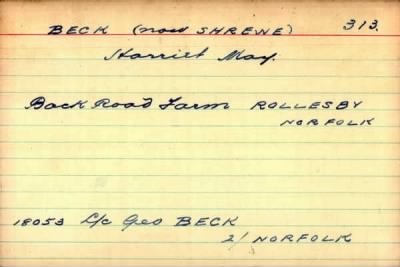 BECK (now SHREWE) 313.
Harriet May.
Back Road Farm ROLLESBY
NORFOLK
18053 L/c Geo BECK
2/ NORFOLK